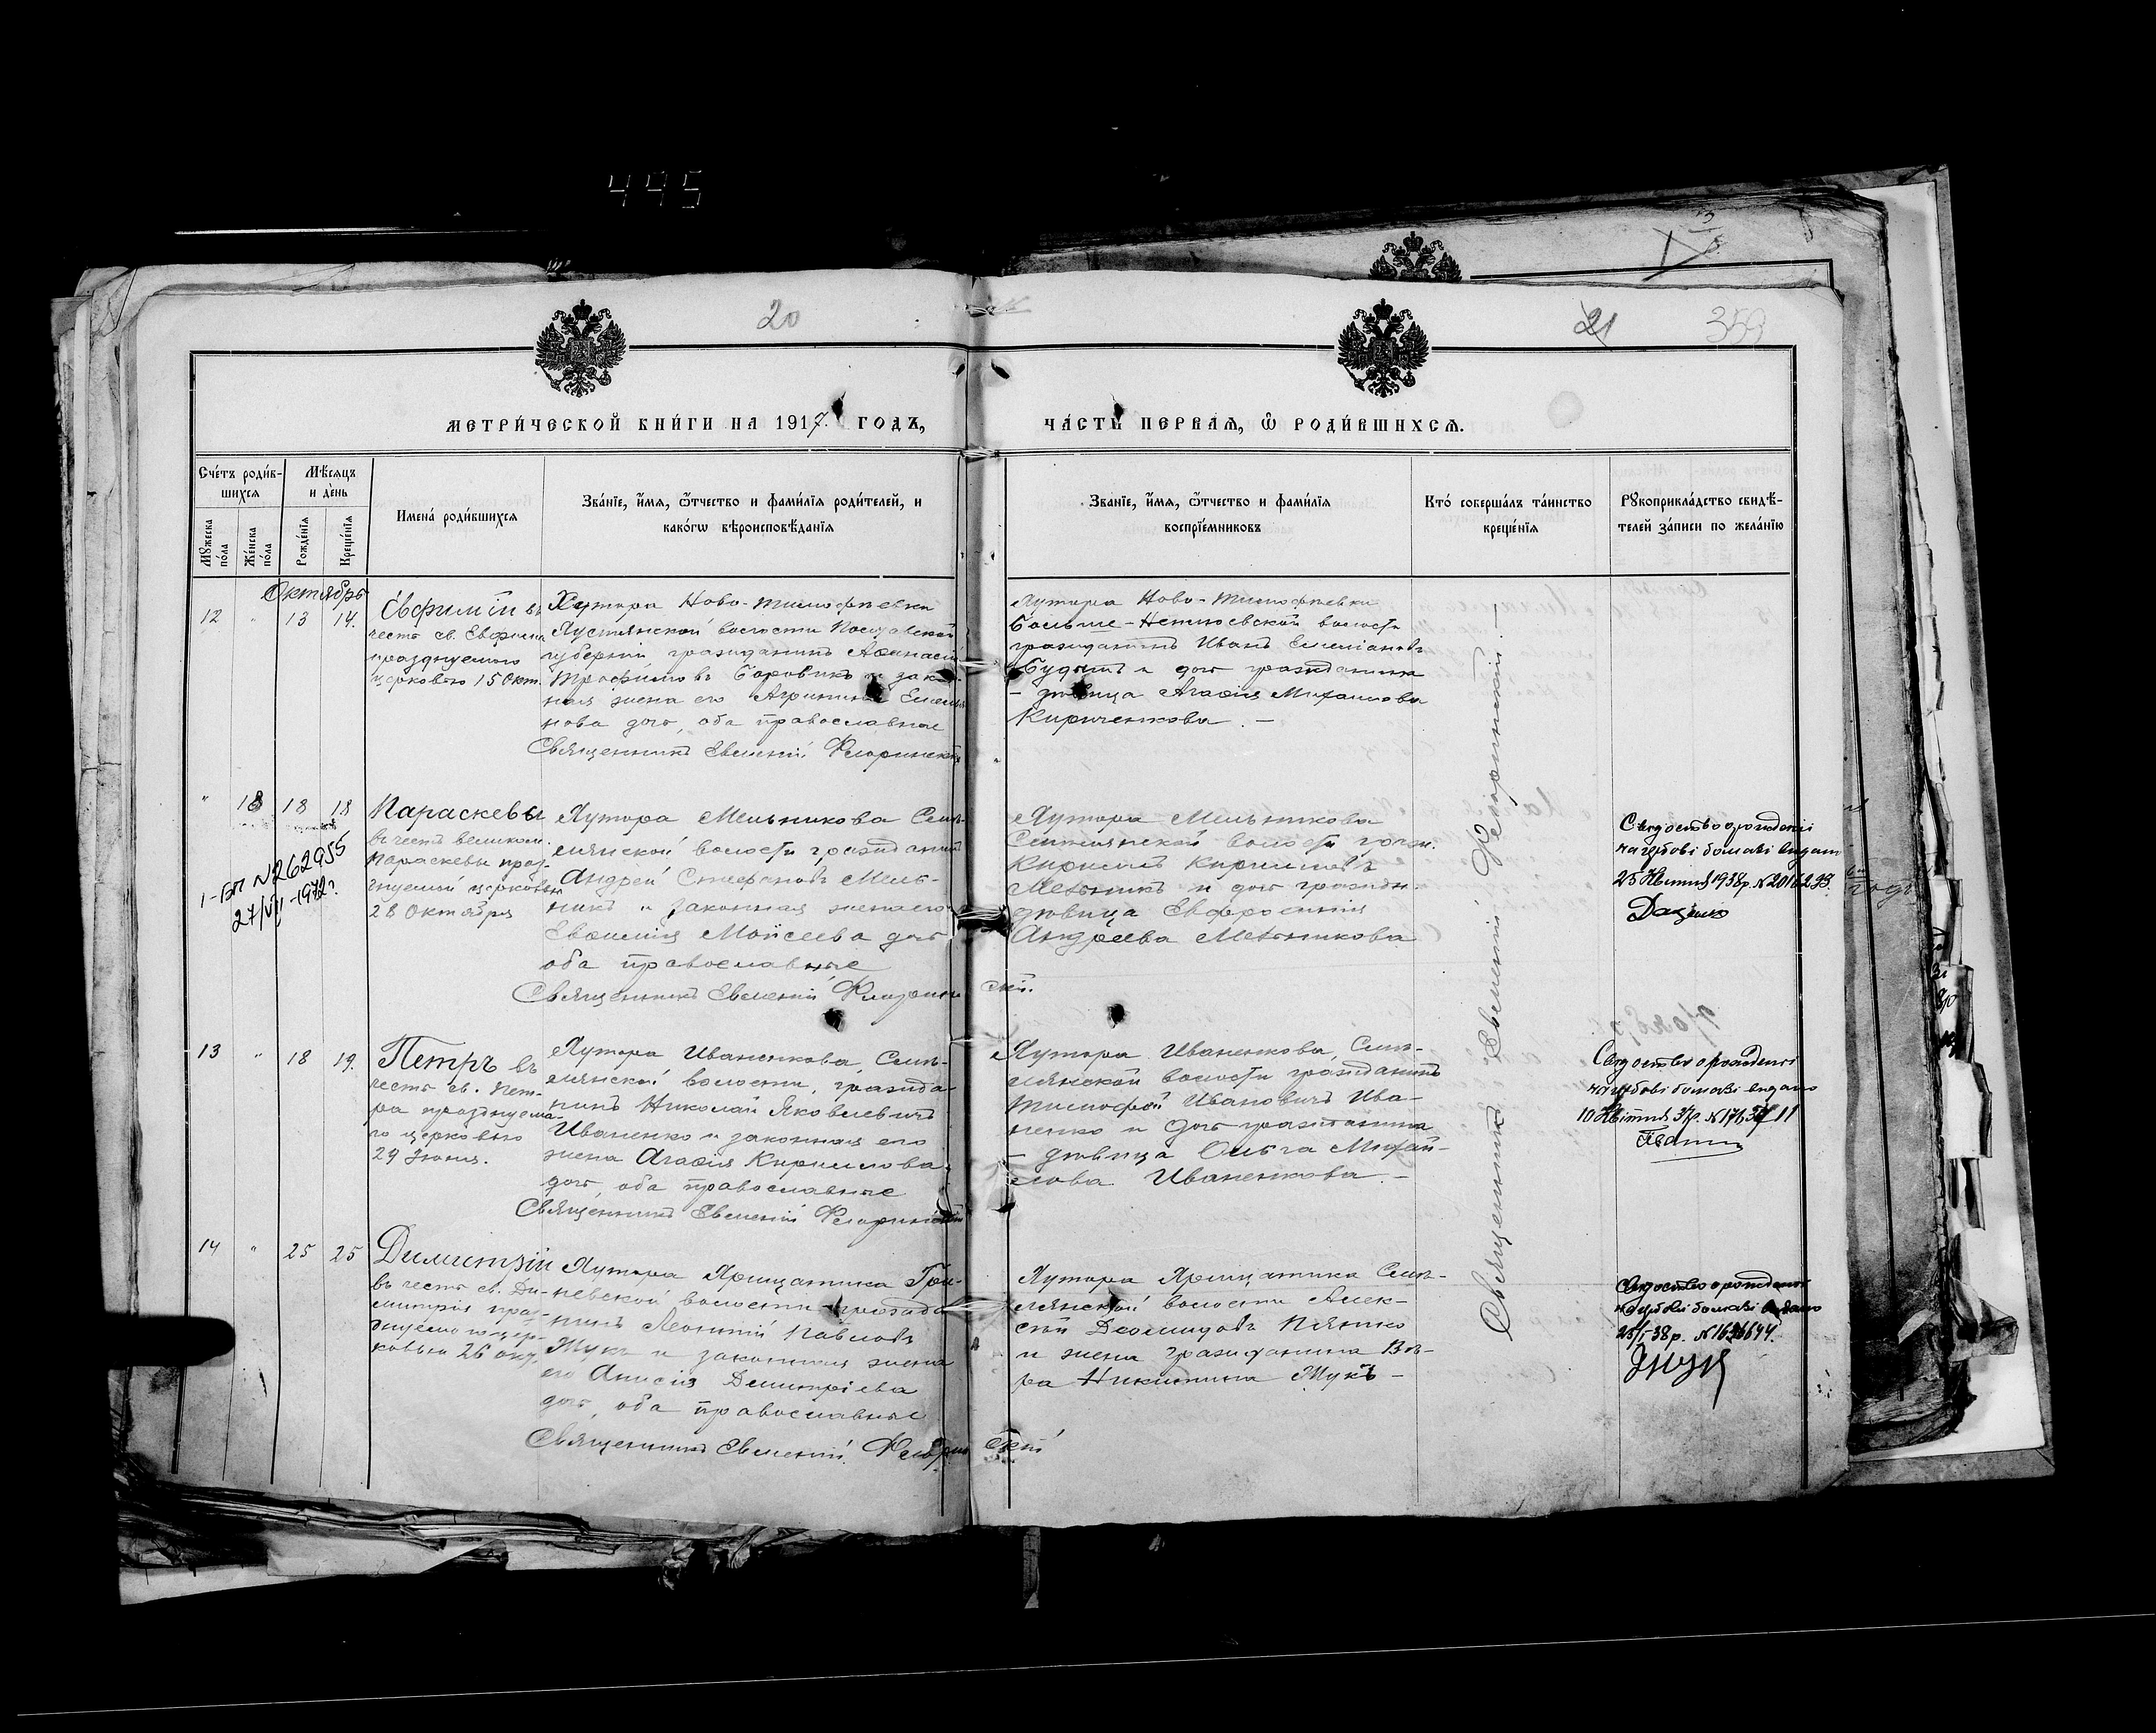 495
20
21
353
МЕТРИ́ЧЕСКОЙ КНИ́ГИ НА 1917 ГОДЪ,
ЧА́СТЬ ПЕ́РВАЯ, Ѿ РОДИ́ВШИХСЯ.
Сче́тъ роди́в-
шихся
Мѣ́сяцъ
и де́нь
Му́жеска
по́ла
Же́нска
по́ла
Рожде́нїя
Креще́нїя
Имена́ роди́вшихся
Зва́нїе, и́мя, ѻ҆́тчество и фами́лїя роди́телей, и
како́гѡ вѣроисповѣ́данїя
Зва́нїе, и́мя, ѻ҆́тчество и фами́лїя
воспрїе́мниковъ
Кто́ соверша́лъ та́инство
креще́нїя
Рꙋкоприкла́дство свидѣ́-
телей за́писи по жела́нїю
Октябрь
12 " 13 14.
Евфимій въ
честь св. Евфимія
празднуемаго
церковью 15 Окт.
Хутора Ново-Тимофѣевка
волости Полтавской
губерніи гражданинъ Аѳанасій
Трофимовъ Боровикъ и закон-
ная жена его Агрипина Емелья-
нова дочь, оба православные
Священникъ Евменій Флоринскій
Хутора Ново-Тимофѣевки
волости
гражданинъ Иванъ Емеліановъ
и дочь гражданина
– дѣвица Агафія Михаилова
Кириченкова. –
" 18 18 18
Параскевы
въ честь великом.
Параскевы праз-
днуемой церковью
28 Октября
1-БП №262955
27/VII-1972г.
Хутора Мельникова Семь-
янской волости гражданинъ
Андрей Стефановъ Мель-
никъ и законная жена его
Евфимія Моисеева дочь
оба православные
Священникъ Евменій Флорин-
скій.
Хутора Мельникова
волости гражд.
Кириллъ Кирилловъ
Мельникъ и дочь граждан.
дѣвица Евфросинія
Андреева Мельникова
Свідоцтво о рождені
на гербові бомазі видан
25 Квітня 1938р. №2016293.
Даценко
13 " 18 19.
Петръ въ
честь св. Пет-
ра празднуема-
го церковью
29 Іюня.
Хутора Иваненкова, Семь-
янской волости, гражда-
нинъ Николай Яковлевичъ
Иваненко и законная его
жена Агафія Кириллова
дочь, оба православные
Священникъ Евменій Флоринскій
Хутора Иваненкова, Семь-
янской волости гражданинъ
Тимофей Ивановичъ Ива-
ненко и дочь гражданина
– дѣвица Ольга Михай-
лова Иваненкова. –
Свідоцтво о рождені
на гербові бомазі видано
10 Квітня 37р.
14 " 25 25
Димитрій
въ честь св. Ди-
митрія праз-
днуемаго цер-
ковью 26 окт.
Хутора Ярищатика
волости гражда-
нинъ Леонтій Павловъ
Жукъ и законная жена
его Анисія Димитріева
дочь, оба православные
Священникъ Евменій Флорин-
скій
Хутора Ярищатика Семь-
янской волости Алек-
сѣй Діомидовъ
и жена гражданина Вѣ-
ра Никитина Жукъ –
Свідоцтво о рождені
на гербові бомазі видано
25/I-38р. №1636644.
Священникъ Евменій Флоринскій. –